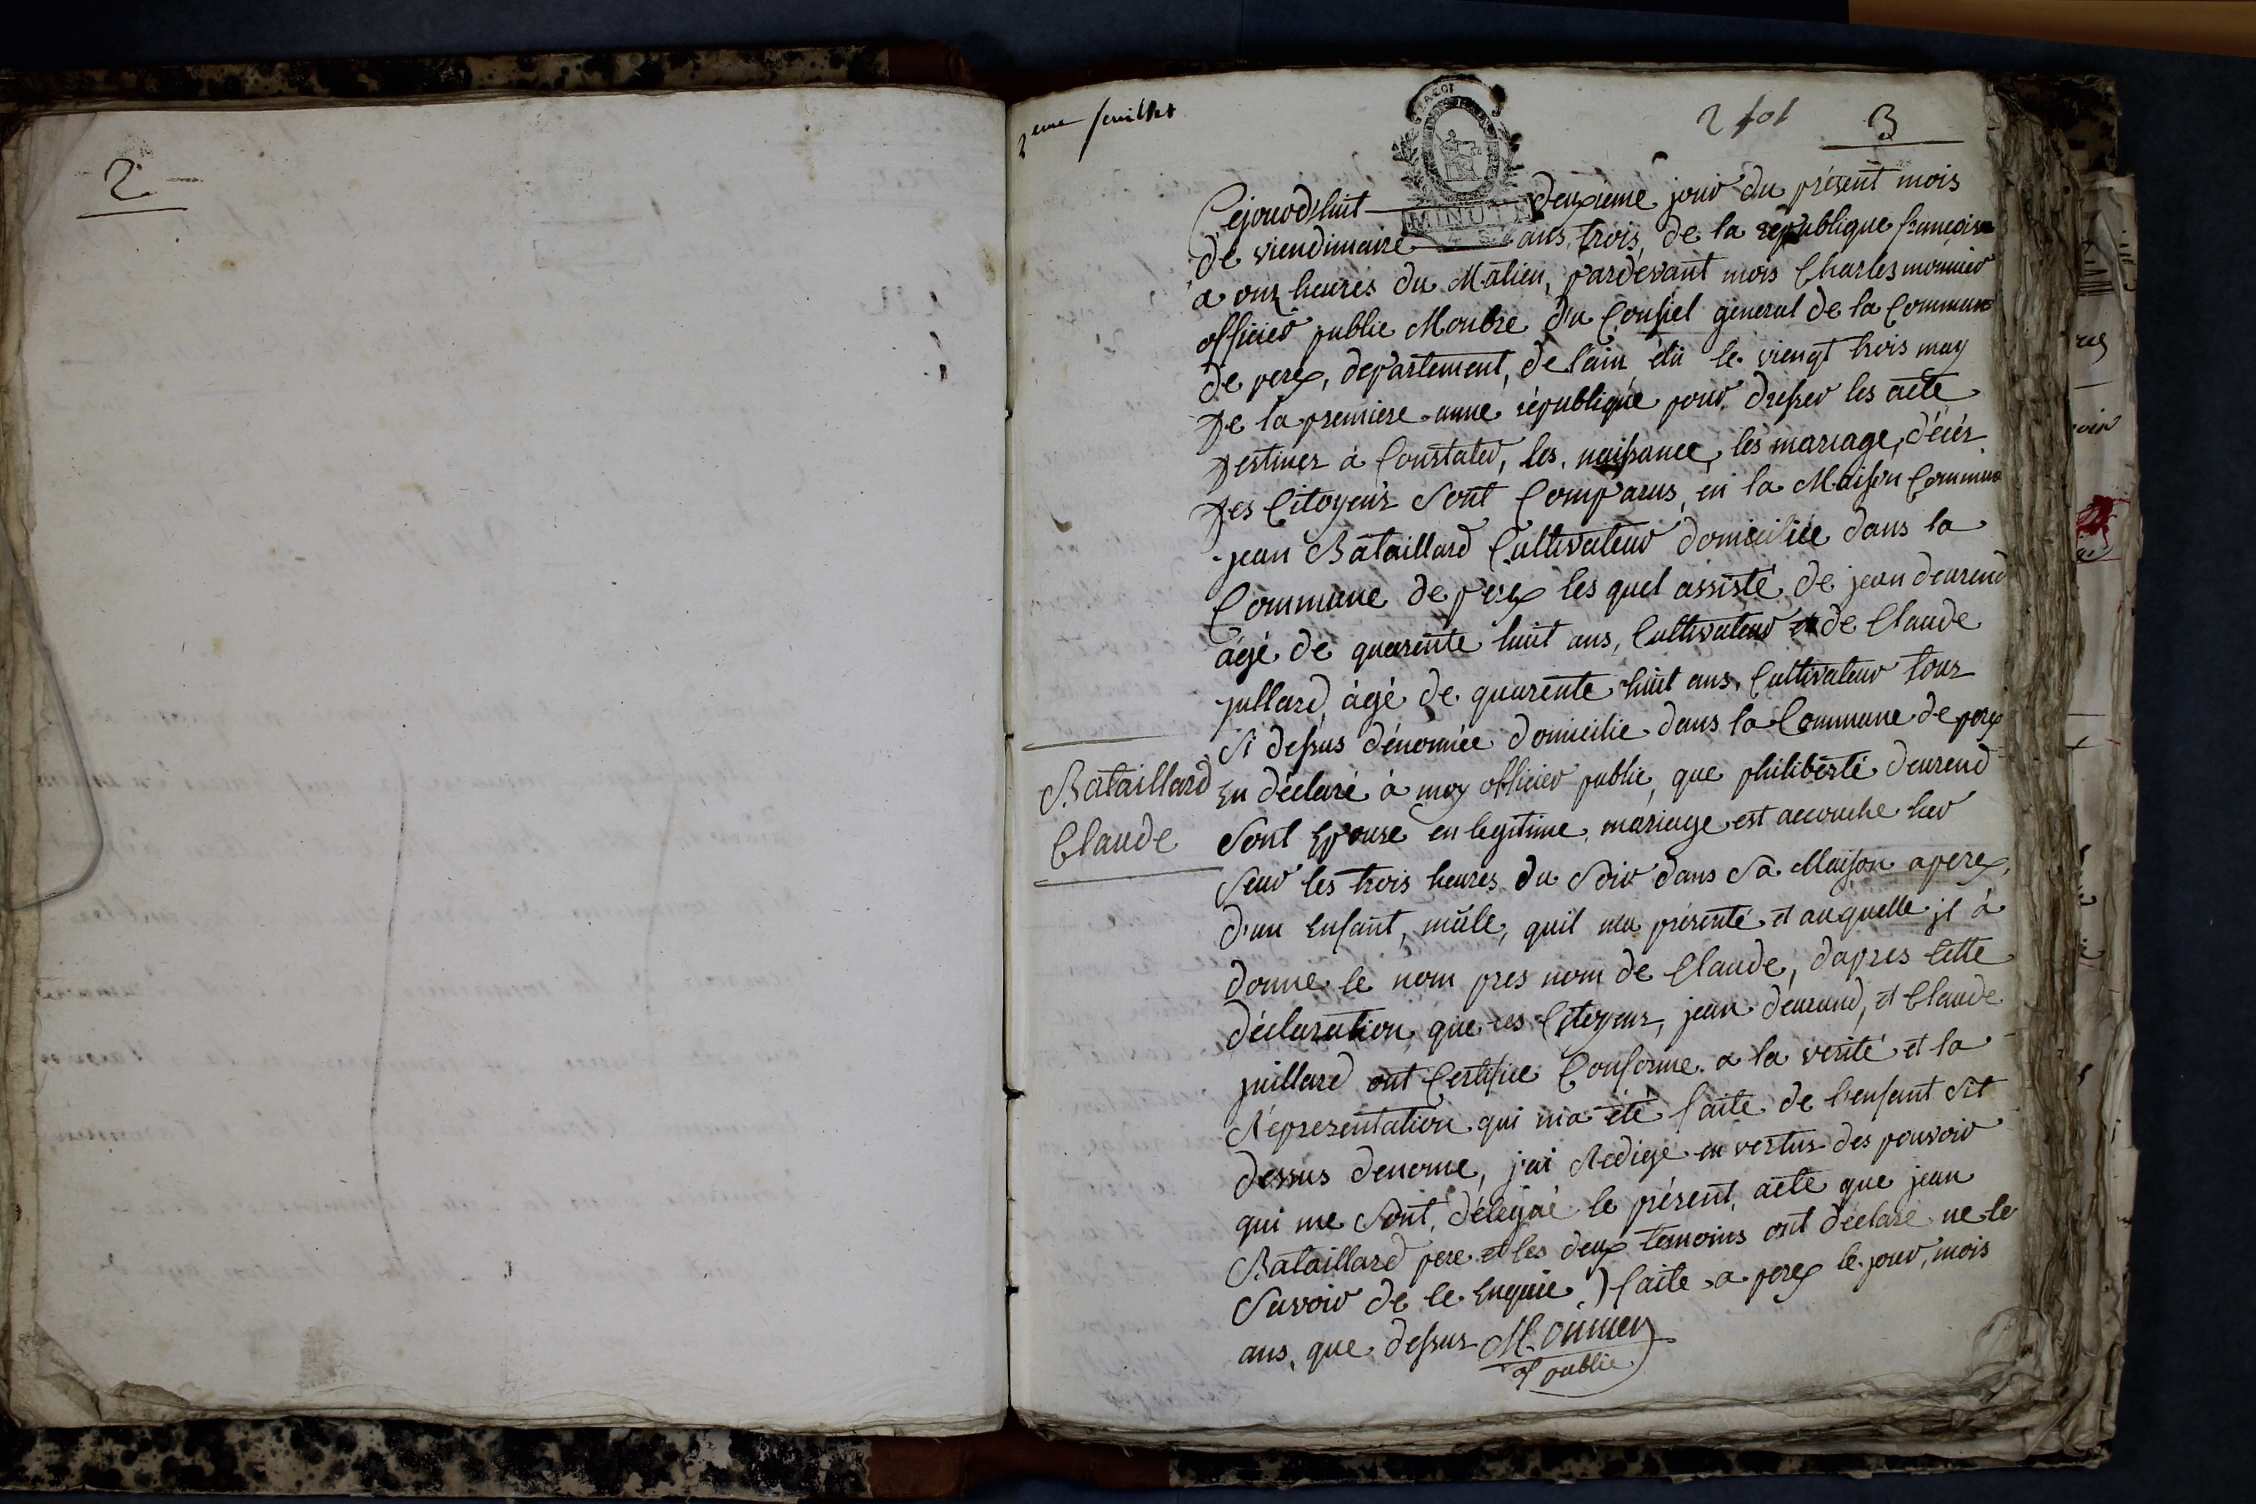 2
2eme feuillet
2 fol
3
MINUTE
Cejourodhuit deuxieme jour du présent mois
de viendimaire ans trois, de la république françoise
a onz heures du Matien, pardevant mois Charles monnier
officier public Monbre du Consiel general de la Commune
de perex, departement, de l'ain élû le viengt trois may
De la premiere anné républiqué pour dresser les acte
Destinez à Constater, les naissance, les mariage, décés
Des Citoyens sont Comparus, en la Maison Commune
jean Bataillard Cultivateur domiciliée dans la
Commune de perex les quel assisté de jean deurend
âgé de quarente huit ans, Cultivateur et de Claude
jullard âgé de quarente huit ans, Cultivateur tous
si dessus dénomée domicilie dans la Commune de perex
Bataillard
Claude
En déclaré à moy officier public, que philiberté deurend
sont Epouse en legitime mariage est accouche hier
seur les trois heures du soir dans sa Maison a perex,
d'un Enfant, mâle, quil ma présenté et auquelle jl à
donne le nom pres nom de Claude, dapres Cette
déclaration, que ces Citoyens, jean deurand, et Claude
juillard ont Certifiée Conforme a la verité et la
Répresentation qui ma été faite de l'enfant sit
dessus denome, j'ai Redigé en vertus des pouvoir
qui me sont, délégué le présent, acte que jean
Bataillard pere et les deux temoins ont déclaré ne le
savoir de le Enquie) faite a perex le jour, mois
ans, que dessus Monnier
of public